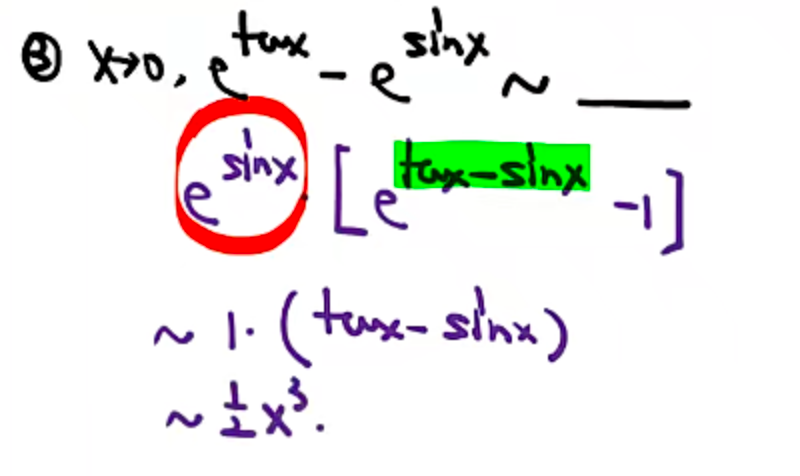 ③ x→0, e^{tanx} - e^{sinx} ~ ____
e^{sinx} [e^{tanx-sinx} -1]
~ 1·(tanx-sinx)
~ 1/2 x³.